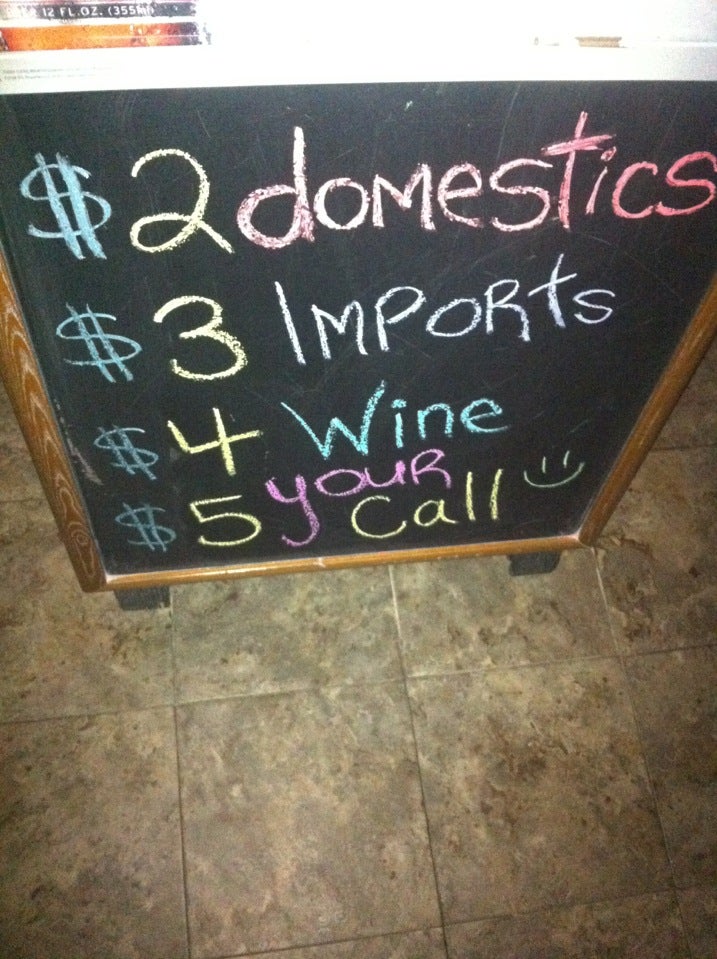 12 FL.OZ. (355
$2 domestics
$3 Imports
$4 Wine
$5 your Call